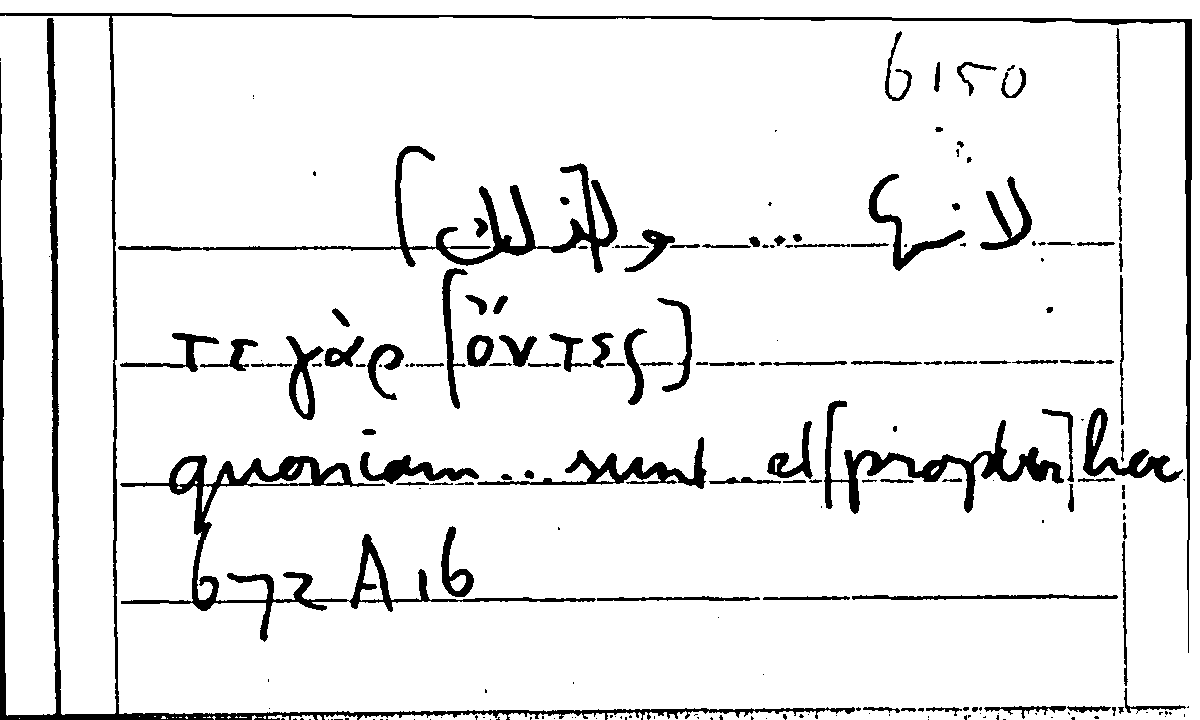 6150
لانه ... و[لذلك]
τε γὰρ [ὄντες]
quoniam ... sunt ... et [propter] hoc
672 A 16